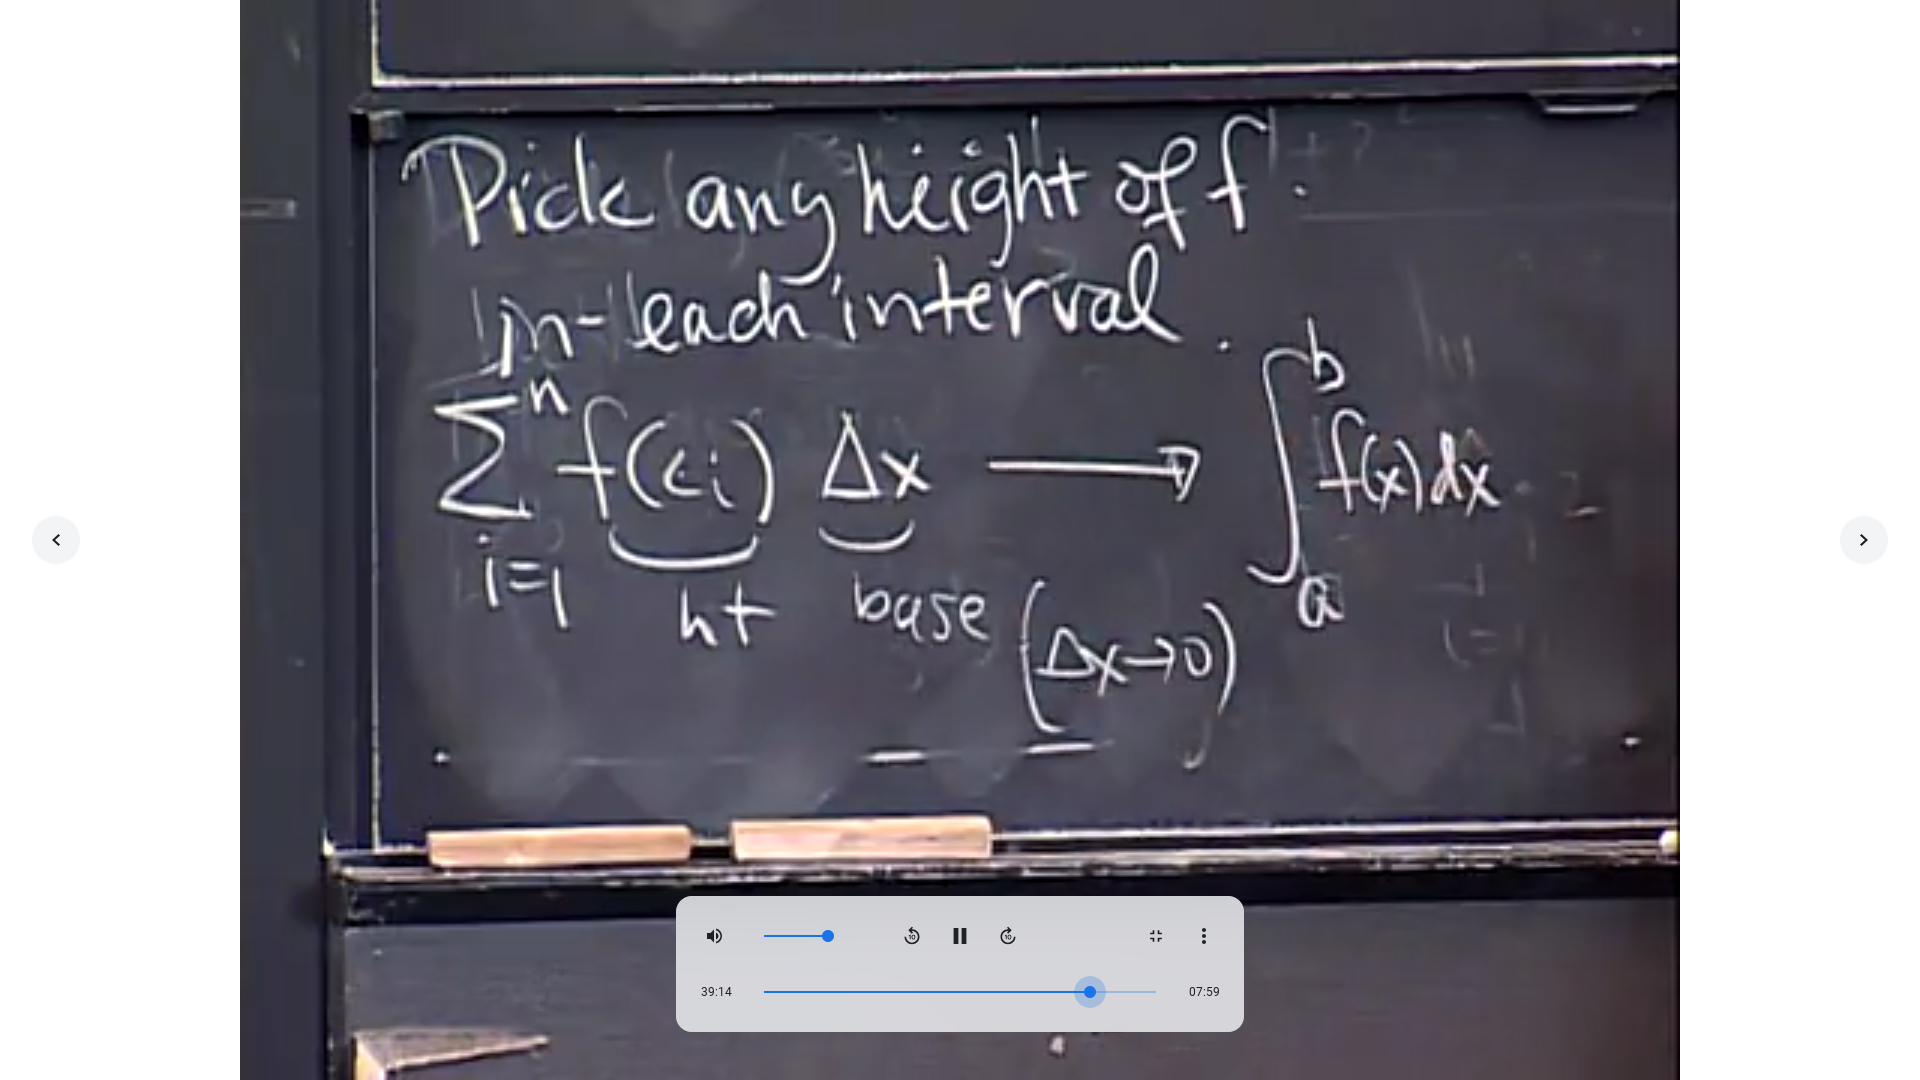 Pick any height of f
in each interval.
n
∑ f(ci) Δx → ∫ f(x) dx
b
i=1
a
ht base (Δx→0)
39:14 07:59